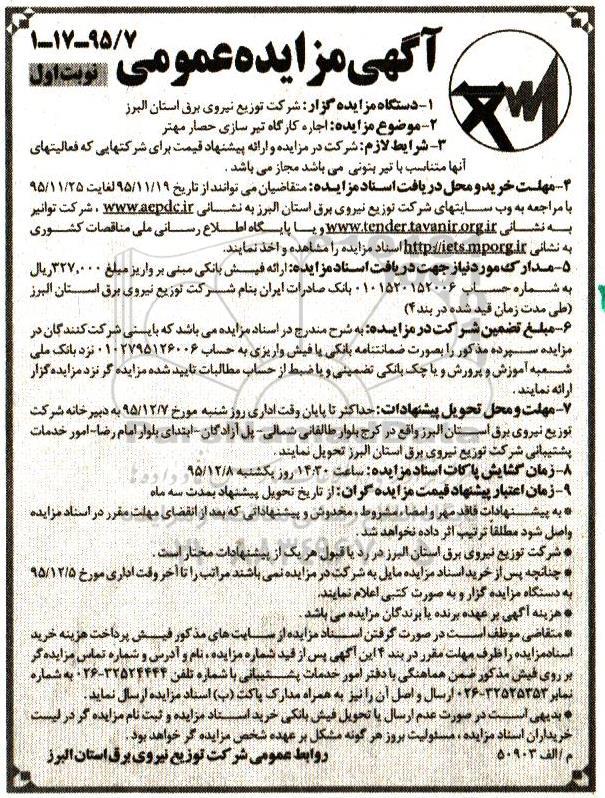 ۹۵/۷-۱۷-۱
آگهی مزایده عمومی
نوبت اول
۱-دستگاه مزایده گزار: شرکت توزیع نیروی برق استان البرز
۲-موضوع مزایده: اجاره کارگاه تیر سازی حصار مهتر
۳-شرایط لازم: شرکت در مزایده و ارائه پیشنهاد قیمت برای شرکتهایی که فعالیتهای
آنها متناسب با تیر بتونی می باشد مجاز می باشد .
۴-مهلت خرید و محل دریافت اسناد مزایده: متقاضیان می توانند از تاریخ ۹۵/۱۱/۱۹ لغایت ۹۵/۱۱/۲۵
با مراجعه به وب سایتهای شرکت توزیع نیروی برق استان البرز به نشانی www.aepdc.ir ، شرکت توانیر
به نشانی www.tender.tavanir.org.ir و یا پایگاه اطلاع رسانی ملی مناقصات کشوری
به نشانی http://iets.mporg.ir اسناد مزایده را مشاهده و اخذ نمایند.
۵-مدارک مورد نیاز جهت دریافت اسناد مزایده: ارائه فیش بانکی مبنی بر واریز مبلغ ۳۲۷,۰۰۰ ریال
به شماره حساب ۰۱۰۱۵۲۰۱۵۲۰۰۶ بانک صادرات ایران بنام شرکت توزیع نیروی برق استان البرز
(طی مدت زمان قید شده در بند ۴)
۶-مبلغ تضمین شرکت در مزایده: به شرح مندرج در اسناد مزایده می باشد که بایستی شرکت کنندگان در
مزایده سپرده مذکور را بصورت ضمانتنامه بانکی یا فیش واریزی به حساب ۰۱۰۲۷۹۵۱۲۶۰۰۶ نزد بانک ملی
شعبه آموزش و پرورش و یا چک بانکی تضمینی و یا ضبط از حساب مطالبات تایید شده مزایده گر نزد مزایده گزار
ارائه نمایند .
۷-مهلت و محل تحویل پیشنهادات: حداکثر تا پایان وقت اداری روز شنبه مورخ ۹۵/۱۲/۷ به دبیرخانه شرکت
توزیع نیروی برق استان البرز واقع در کرج بلوار طالقانی شمالی-پل آزادگان-ابتدای بلوار امام رضا-امور خدمات
پشتیبانی شرکت توزیع نیروی برق استان البرز تحویل نمایند.
۸-زمان گشایش پاکات اسناد مزایده: ساعت ۱۴:۳۰ روز یکشنبه ۹۵/۱۲/۸
۹-زمان اعتبار پیشنهاد قیمت مزایده گران: از تاریخ تحویل پیشنهاد بمدت سه ماه
* به پیشنهادات فاقد مهر و امضاء مشروط ، مخدوش و پیشنهاداتی که بعد از انقضای مهلت مقرر در اسناد مزایده
واصل شود مطلقاً ترتیب اثر داده نخواهد شد.
* شرکت توزیع نیروی برق استان البرز در رد یا قبول هر یک از پیشنهادات مختار است .
* چنانچه پس از خرید اسناد مزایده مایل به شرکت در مزایده نمی باشند مراتب را تا آخر وقت اداری مورخ ۹۵/۱۲/۵
به دستگاه مزایده گزار و به صورت کتبی اعلام نمایند.
* هزینه آگهی بر عهده برنده یا برندگان مزایده می باشد .
* متقاضی موظف است در صورت گرفتن اسناد مزایده از سایت های مذکور فیش پرداخت هزینه خرید
اسناد مزایده را ظرف مهلت مقرر در بند ۴ این آگهی پس از قید شماره مزایده ، نام و آدرس و شماره تماس مزایده گر
بر روی فیش مذکور ضمن هماهنگی با دفتر امور خدمات پشتیبانی با شماره تلفن ۳۲۵۲۴۴۴۴-۰۲۶ به شماره
نمابر ۳۲۵۲۵۳۵۳-۰۲۶ ارسال و اصل آن را نیز به همراه مدارک پاکت (ب) اسناد مزایده ارسال نماید.
* بدیهی است در صورت عدم ارسال یا تحویل فیش بانکی خرید اسناد مزایده و ثبت نام مزایده گر در لیست
خریداران اسناد مزایده ، مسئولیت بروز هر گونه مشکل بر عهده شخص مزایده گر خواهد بود.
روابط عمومی شرکت توزیع نیروی برق استان البرز
م / الف ۵۰۹۰۳